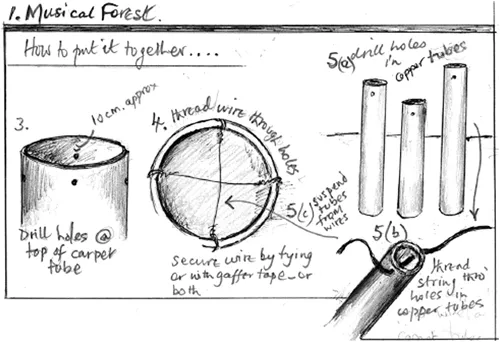 1. Musical Forest.
How to put it together.....
3.
10cm. approx
Drill holes @
top of carpet
tube
4. thread wire through holes
secure wire by tying
or with gaffer tape - or
both
5(a) drill holes
in
copper tubes
5(c) suspend
tubes
from
wires
5(b)
thread
string thro'
holes in
copper tubes